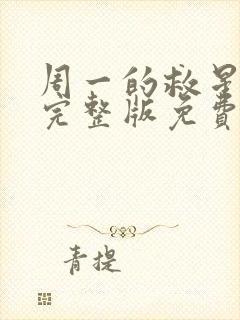 周一的救星
完整版免费
青提